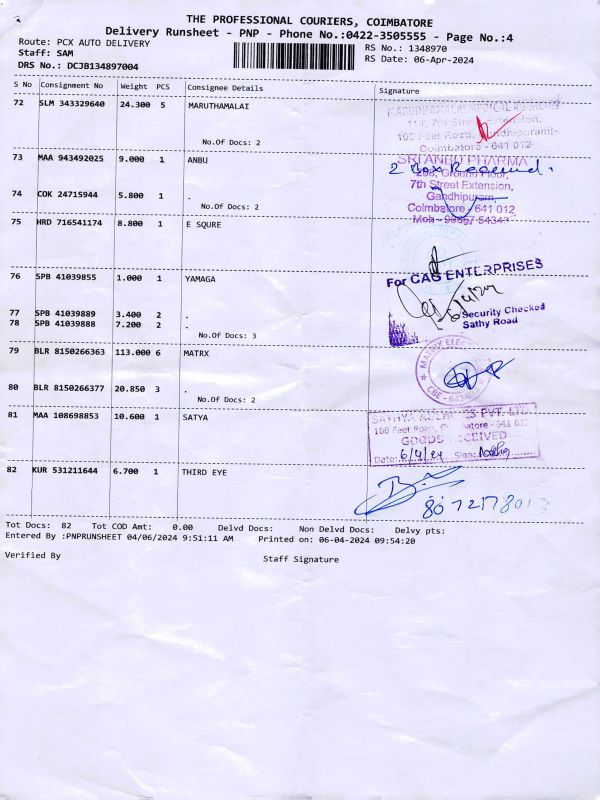 THE PROFESSIONAL COURIERS, COIMBATORE
Delivery Runsheet - PNP - Phone No.:0422-3505555 - Page No.:4
Route: PCX AUTO DELIVERY
RS No.: 1348970
Staff: SAM
RS Date: 06-Apr-2024
DRS No.: DCJB134897004
S No Consignment No Weight PCS Consignee Details Signature
72 SLM 343329640 24.300 5 MARUTHAMALAI
7th Street Extension,
100 Feet Road,
Coimbatore - 641 012
No.Of Docs: 2
73 MAA 943492025 9.000 1 ANBU
SRI ANBU PHARMA
2 Box Received.
298, Ground Floor,
7th Street Extension,
Gandhipuram,
Coimbatore - 641 012
74 COK 24715944 5.800 1 .
No.Of Docs: 2
75 HRD 716541174 8.800 1 E SQURE
For CAG ENTERPRISES
76 SPB 41039855 1.000 1 YAMAGA
6/4/24
Security Checked
Sathy Road
77 SPB 41039889 3.400 2 .
78 SPB 41039888 7.200 2 .
No.Of Docs: 3
79 BLR 8150266363 113.000 6 MATRX
80 BLR 8150266377 20.850 3 .
No.Of Docs: 2
81 MAA 108698853 10.600 1 SATYA
PVT. LTD.
100 Feet Road, - 641 012
GOODS RECEIVED
Date: 6/4/24 Sign:
82 KUR 531211644 6.700 1 THIRD EYE
Tot Docs: 82 Tot COD Amt: 0.00 Delvd Docs: Non Delvd Docs: Delvy pts:
Entered By :PNPRUNSHEET 04/06/2024 9:51:11 AM Printed on: 06-04-2024 09:54:20
Verified By
Staff Signature